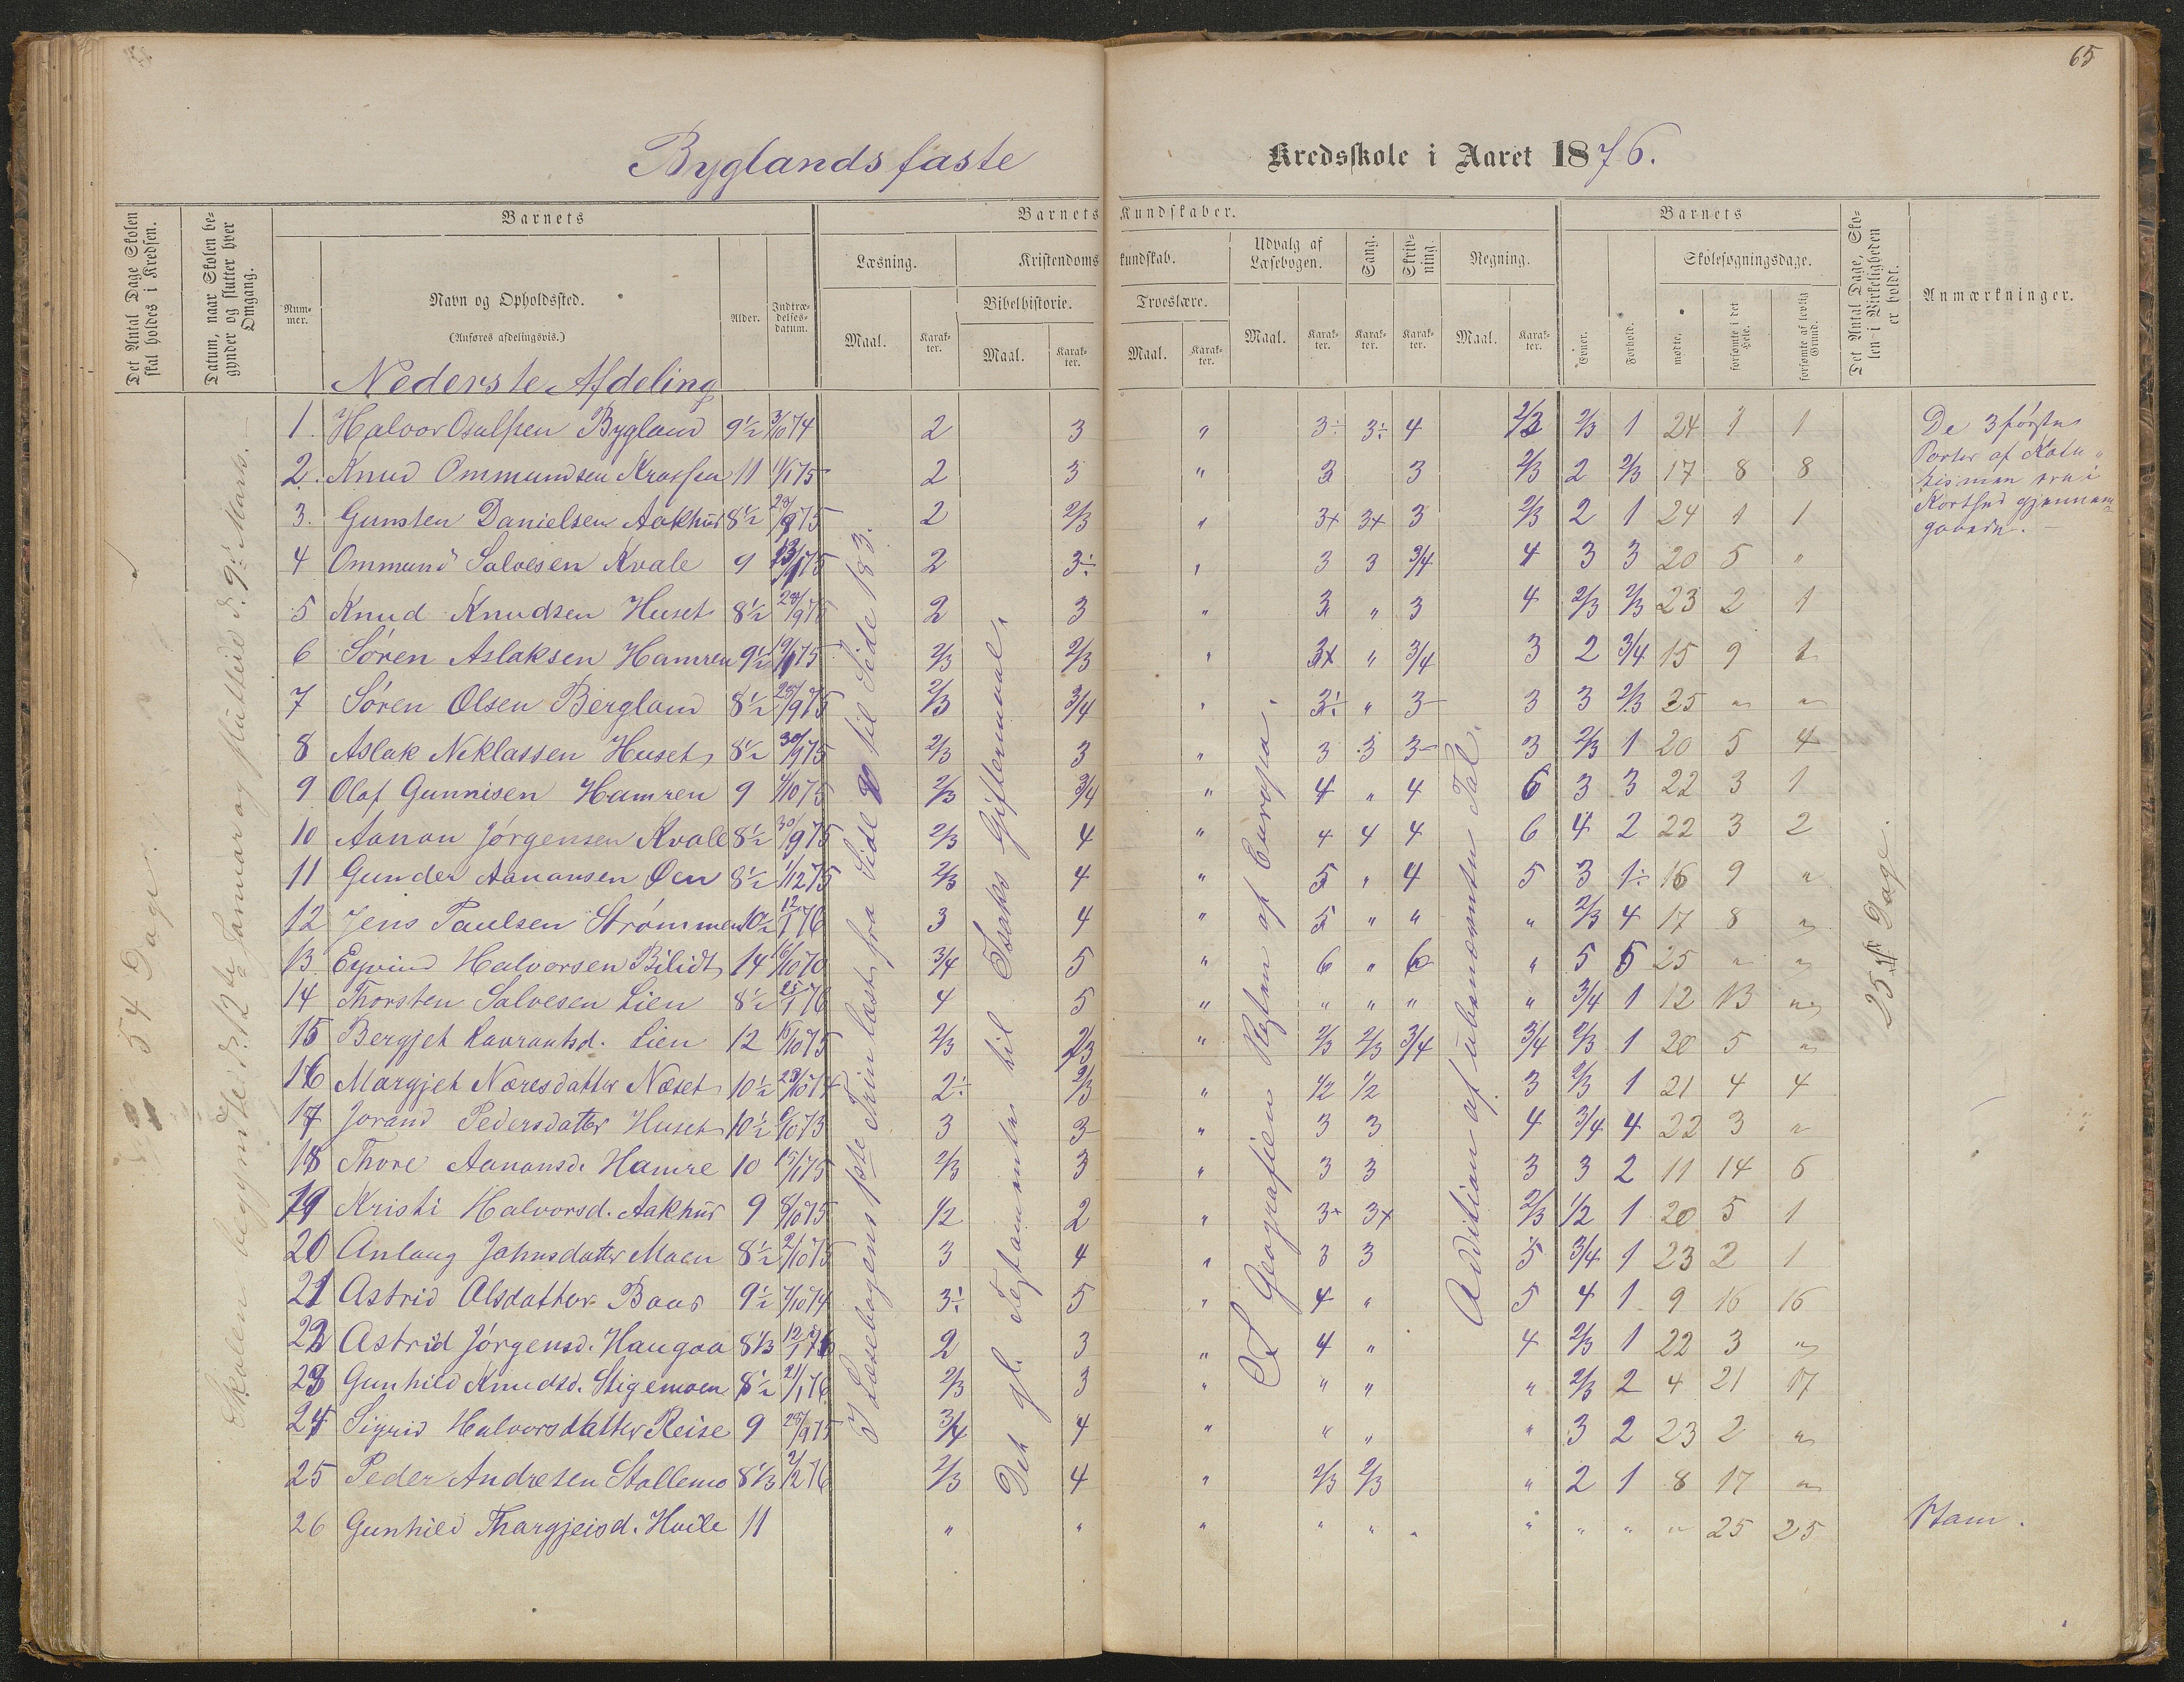 65
Byglands faste Kredsskole i Aaret 1876.
Det Antal Dage Skolen skal holdes i Kredsen.
Datum, naar Skolen begynder og slutter hver Omgang.
Barnets
Nummer.
Navn og Opholdssted.
(Anføres afdelingsvis.)
Alder.
Indtrædelsesdatum.
Barnets Kundskaber.
Læsning.
Maal.
Karakter.
Kristendomskundskab.
Bibelhistorie.
Maal.
Karakter.
Troeslære.
Maal.
Karakter.
Udvalg af Læsebogen.
Maal.
Karakter.
Sang.
Karakter.
Skrivning.
Karakter.
Regning.
Maal.
Karakter.
Barnets
Evner.
Forhold.
Skolesøgningsdage.
mødte.
forsømte i det Hele.
forsømte af lovlig Grund.
Det Antal Dage, Skolen i Virkeligheden er holdt.
Anmærkninger.
Nederste Afdeling
1. Halvor Osulfsen Bygland 9½ 3/10 74 2 3 " 3÷ 3÷ 4 2/3 2/3 1 24 1 1
2. Knud Ommundsen 11 11/1 75 2 3 " 3 3 2/3 2 2/3 17 8 8
3. Gunsten Danielsen Aakhus 8½ 28/9 75 2 2/3 " 3+ 3+ 3 2/3 2 1 24 1 1
4 Ommund Salvesen Kvale 9 13/1 75 2 3÷ " 3 3 3/4 4 3 3 20 5 "
5 Knud Knudsen Huset 8½ 28/9 75 2 3 " 3 " 3 4 2/3 2/3 23 2 1
6 Søren Aslaksen Hamren 9½ 19/1 75 2/3 2/3 " 3+ " 3/4 3 2 3/4 15 9 1
7 Søren Olsen Bergland 8½ 28/9 75 2/3 3/4 " 3÷ " 3 3 3 2/3 25 " "
8 Aslak Neklassen Huset 8½ 30/9 75 2/3 3 " 3 3 3 3 2/3 1 20 5 4
9 Olaf Gunnisen Hamren 9 4/10 75 2/3 3/4 " 4 " 4 6 3 3 22 3 1
10 Aanon Jørgensen Kvale 8½ 30/9 75 2/3 4 " 4 4 4 6 4 2 22 3 2
11 Gunder Aanonsen Øen 8½ 1/12 75 2/3 4 " 5 " 4 5 3 1÷ 16 9 "
12 Jens Paulsen Strømmen 10½ 12/1 76 3 4 " 5 " " " 2/3 4 17 8 "
13 Eyvind Halvorsen Bilidt 14 16/10 70 3/4 5 " 6 " 6 " 5 5 25 " "
14 Thorsten Salvesen Lien 8½ 25/1 76 4 5 " " " " " 3/4 1 12 13 "
15 Bergjet Lavrantsd. Lien 12 15/10 75 2/3 2/3 " 2/3 2/3 3/4 3/4 2/3 1 20 5 "
16 Margjet Noresdatter Næset 10½ 28/10 74 2÷ 2/3 " 1/2 1/2 3 2/3 1 21 4 4
17 Jorand Pedersdatter Huset 10½ 6/10 73 3 3 " 3 3 4 3/4 4 22 3 "
18 Thore Aanonsd. Hamre 10 15/1 75 2/3 3 " 3 3 3 3 2 11 14 6
19 Kristi Halvorsd. Aakhus 9 8/10 75 1/2 2 " 3+ 3+ 2/3 1/2 1 20 5 1
20 Anlaug Johnsdatter Moen 8½ 2/10 75 3 4 " 3 3 5 3/4 1 23 2 1
21 Astrid Olsdatter Baas 9½ 7/10 74 3÷ 5 " 4 " 5 4 1 9 16 16
22 Astrid Jørgensd. Haugaa 8 1/3 12/1 76 2 3 " 4 " 4 2/3 1 22 3 "
23 Gunhild Knudsd. Stigemoen 8½ 21/1 76 2/3 3 " " " " 2/3 2 4 21 17
24 Sigrid Halvorsdatter Reise 9 28/9 75 3/4 4 " " " " 3 2 23 2 "
25 Peder Andresen Stallemo 8 1/3 2/2 76 2/3 4 " 2/3 2/3 " 2 1 8 17 "
26 Gunhild Thorgjeisd. Hvile 11 " " " " " " " " " " 25 25
54 Dage.
Skolen begyndte d. 12te Januar og sluttede d. 9de Marts.
I Læsebogens 1ste Trin læst fra Side til Side 183.
Det gl. Testamente til Isaks Giftermaal.
Af Geografien Resten af Europa.
Addition af ubenævnte Tal.
25 Dage.
De 3 første
Parter af Kate-
kismen ere i
Korthed gjennem-
gaaede.